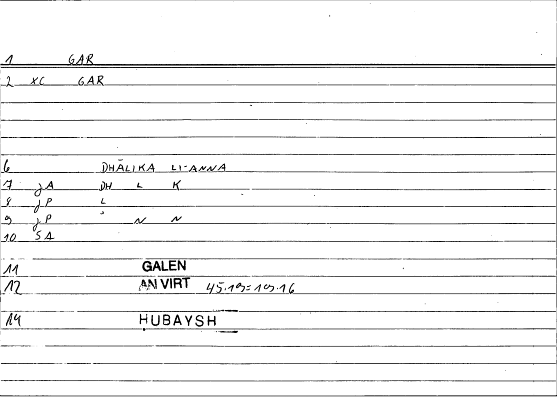 1 GAR
2 XC GAR
6 DHĀLIKA LI-ANNA
7 jA DH L K
8 jP L
9 jP ' N N
10 SA
11 GALEN
12 AN VIRT
14 HUBAYSH